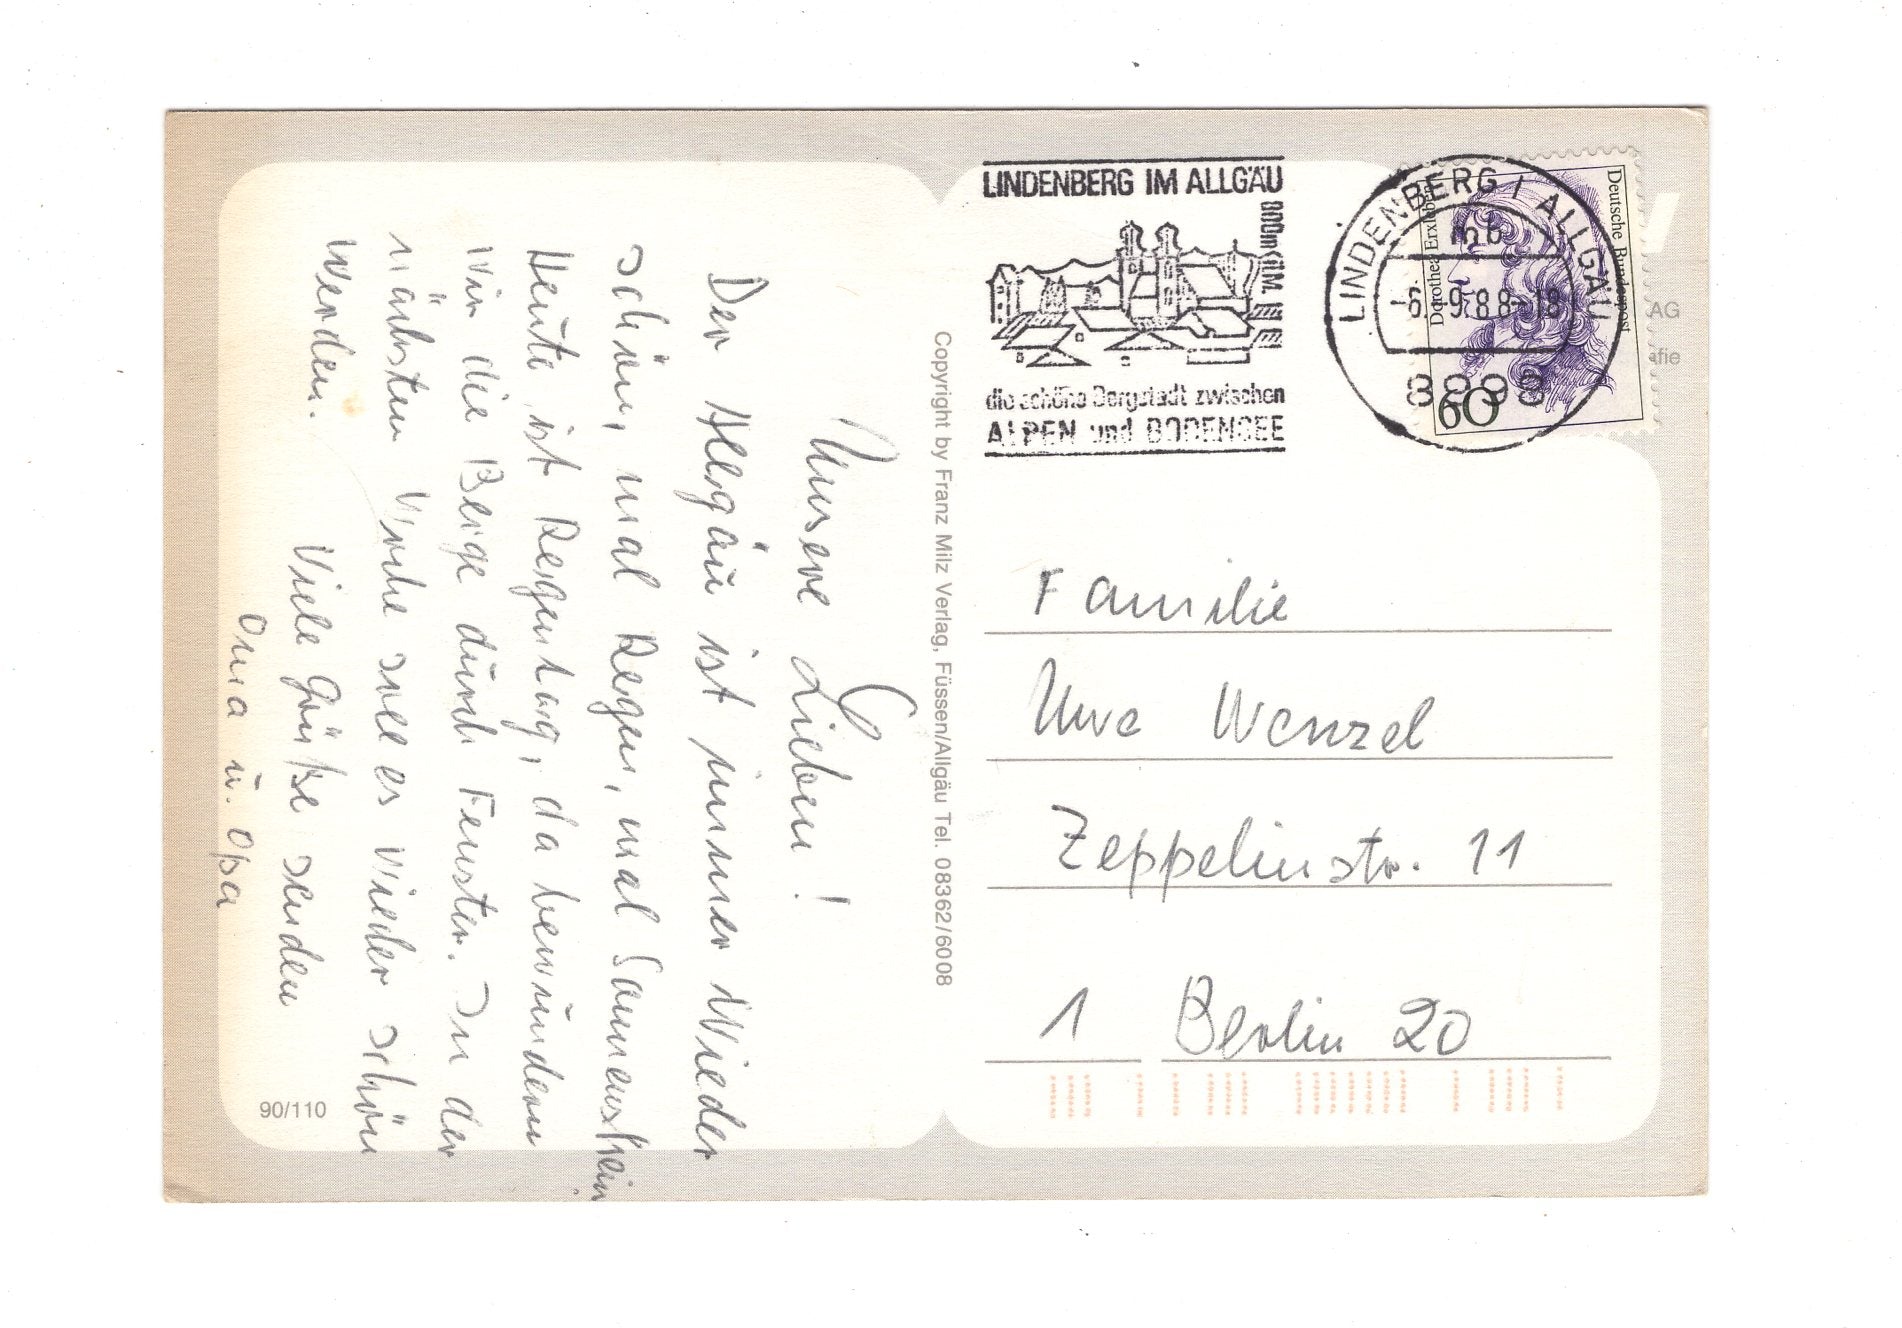 Unsere Lieben!
Der Allgäu ist immer wieder
schön, mal Regen, mal Sonnenschein
Heute ist Regentag, da bewundern
wir die Berge durch Fenster. In der
nächsten Woche soll es wieder schön
werden.
Viele Grüße senden
Oma u. Opa
90/110
Copyright by Franz Milz Verlag, Füssen/Allgäu Tel. 08362/6008
LINDENBERG IM ALLGÄU
800m ü.M.
die schöne Bergstadt zwischen
ALPEN und BODENSEE
LINDENBERG I ALLGÄU
mb
-6.-9.88-18
8998
Deutsche Bundespost
Dorothea Erxleben
60
AG
afie
Familie
Uwe Wenzel
Zeppelinstr. 11
1 Berlin 20